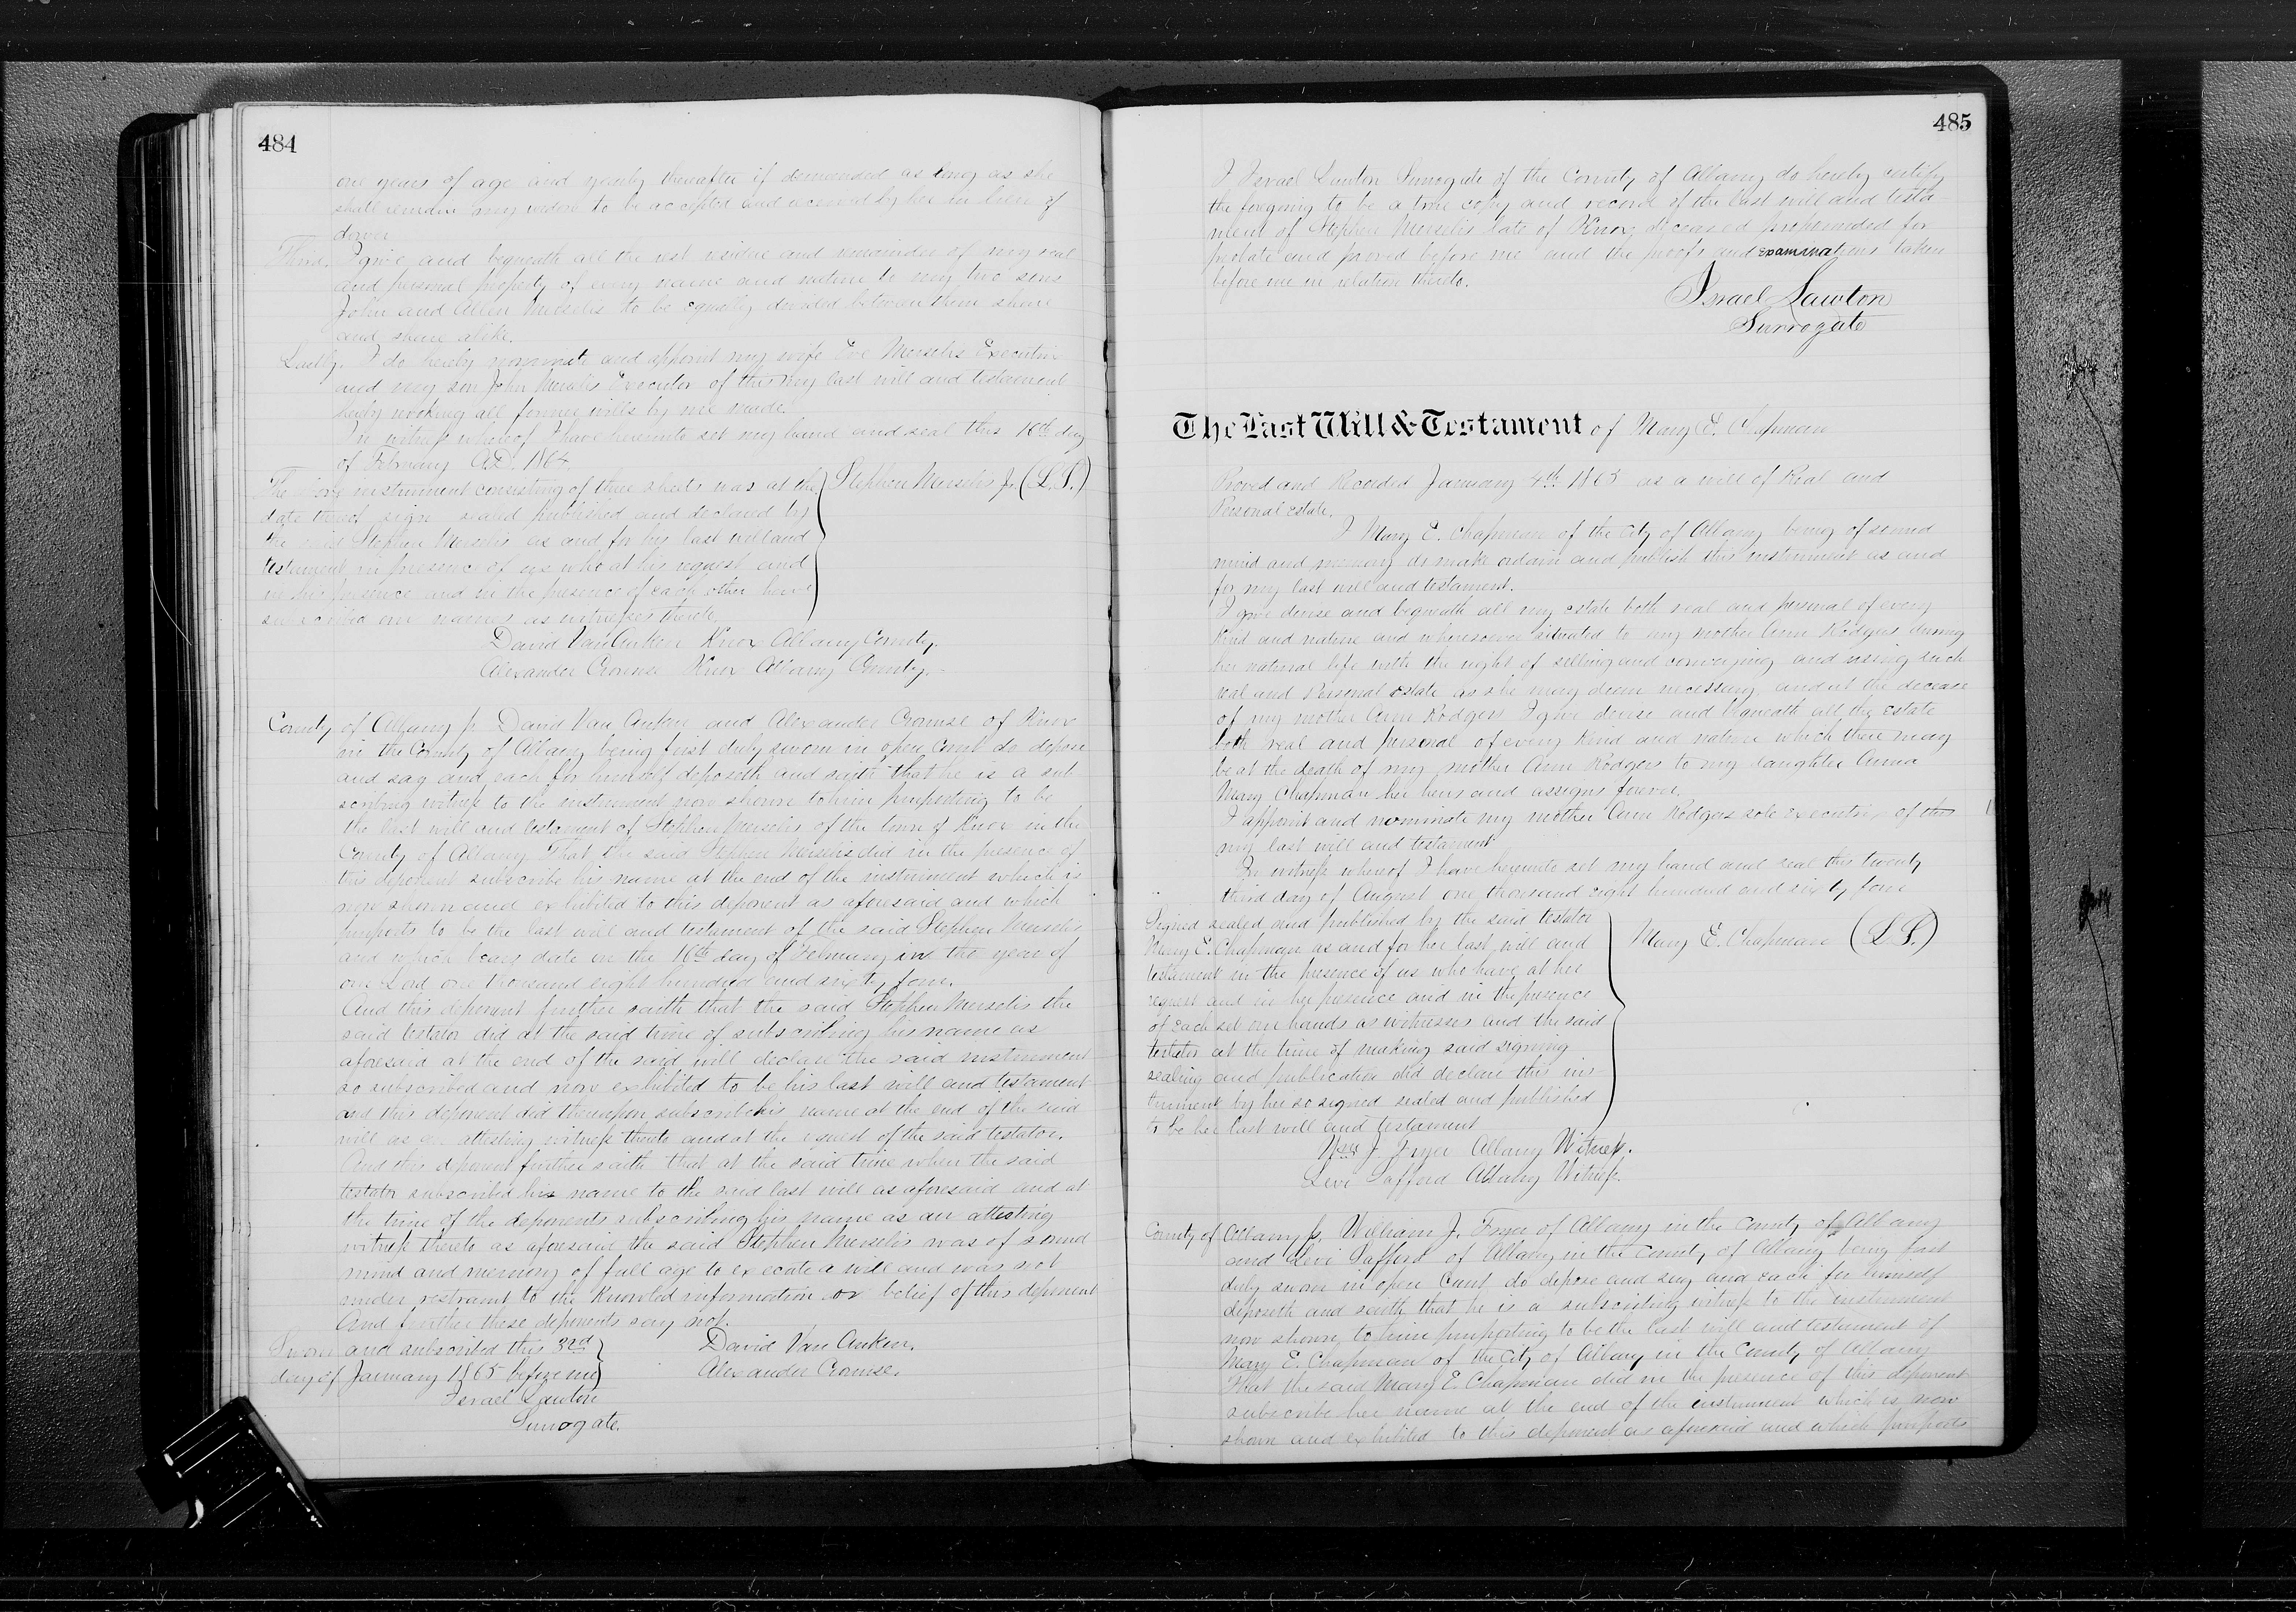 484
one years of age and yearly thereafter if demanded as long as she
shall remain my widow to be accepted and received by her in lieu of
dower
Third. I give and bequeath all the rest residue and remainder of my real
and personal property of every name and nature to my two sons
John and Allen Merselis to be equally divided between them share
and share alike.
Lastly. I do hereby nominate and appoint my wife Eve Merselis Executrix
and my son John Merselis Executor of this my last will and testament
hereby revoking all former wills by me made.
In witness whereof I have hereunto set my hand and seal this 16th day
of February A.D. 1864.
The above instrument consisting of three sheets was at the
date thereof sign sealed published and declared by
the said Stephen Merselis as and for his last will and
testament in presence of us who at his request and
in his presence and in the presence of each other have
subscribed our names as witnesses thereto
Stephen Merselis Jr (L.S.)
David Van Auken Knox Albany County.
Alexander Crounse Knox Albany County.
County of Albany ss David Van Auken and Alexander Crounse of Knox
in the County of Albany being first duly sworn in open Court do depose
and say and each for himself deposeth and saith that he is a sub
scribing witness to the instrument now shown to him purporting to be
the last will and testament of Stephen Merselis of the town of Knox in the
County of Albany That the said Stephen Merselis did in the presence of
this deponent subscribe his name at the end of the instrument which is
now shown and exhibited to this deponent as aforesaid and which
purports to be the last will and testament of the said Stephen Merselis
and which bears date on the 16th day of February in the year of
our Lord one thousand eight hundred and sixty four.
And this deponent further saith that the said Stephen Merselis the
said testator did at the said time of subscribing his name as
aforesaid at the end of the said will declare the said instrument
so subscribed and now exhibited to be his last will and testament
and this deponent did thereupon subscribe his name at the end of the said
will as an attesting witness thereto and at the request of the said testator.
And this deponent further saith that at the said time when the said
testator subscribed his name to the said last will as aforesaid and at
the time of the deponents subscribing his name as an attesting
witness thereto as aforesaid the said Stephen Merselis was of sound
mind and memory of full age to execute a will and was not
under restraint to the knowled information or belief of this deponent
And further these deponents say not.
Sworn and subscribed this 3rd
day of January 1865 before me
Israel Lawton
Surrogate.
David Van Auken.
Alexander Crounse.
485
I Israel Lawton Surrogate of the County of Albany do hereby certify
the foregoing to be a true copy and record of the last will and testa-
ment of Stephen Merselis late of Knox deceased propounded for
probate and proved before me and the proofs and examinations taken
before me in relation thereto.
Israel Lawton
Surrogate
The Last Will & Testament of Mary E. Chapman
Proved and Recorded January 4th 1865 as a will of Real and
Personal estate.
I Mary E. Chapman of the City of Albany being of sound
mind and memory do make ordain and publish this instrument as and
for my last will and testament.
I give devise and bequeath all my estate both real and personal of every
kind and nature and wheresoever situated to my mother Ann Rodgers during
her natural life with the right of selling and conveying and using such
real and Personal estate as she may deem necessary, and at the decease
of my mother Ann Rodgers I give devise and bequeath all the estate
both real and personal of every kind and nature which there may
be at the death of my mother Ann Rodgers to my daughter Anna
Mary Chapman her heirs and assigns forever.
I appoint and nominate my mother Ann Rodgers sole executrix of this
my last will and testament
In witness whereof I have hereunto set my hand and seal this twenty
third day of August one thousand eight hundred and sixty four
Signed sealed and published by the said testator
Mary E. Chapman as and for her last will and
testament in the presence of us who have at her
request and in her presence and in the presence
of each set our hands as witnesses and the said
testator at the time of making said signing
sealing and publication did declare this ins
trument by her so signed sealed and published
to be her last will and testament
Mary E. Chapman (L.S.)
Wm J. Fryer Albany Witness.
Levi Safford Albany Witness.
County of Albany ss. William J. Fryer of Albany in the County of Albany
and Levi Safford of Albany in the County of Albany being first
duly sworn in open Court do depose and say and each for himself
deposeth and saith that he is a subscribing witness to the instrument
now shown to him purporting to be the last will and testament of
Mary E. Chapman of the City of Albany in the County of Albany
That the said Mary E. Chapman did in the presence of this deponent
subscribe her name at the end of the instrument which is now
shown and exhibited to this deponent as aforesaid and which purports